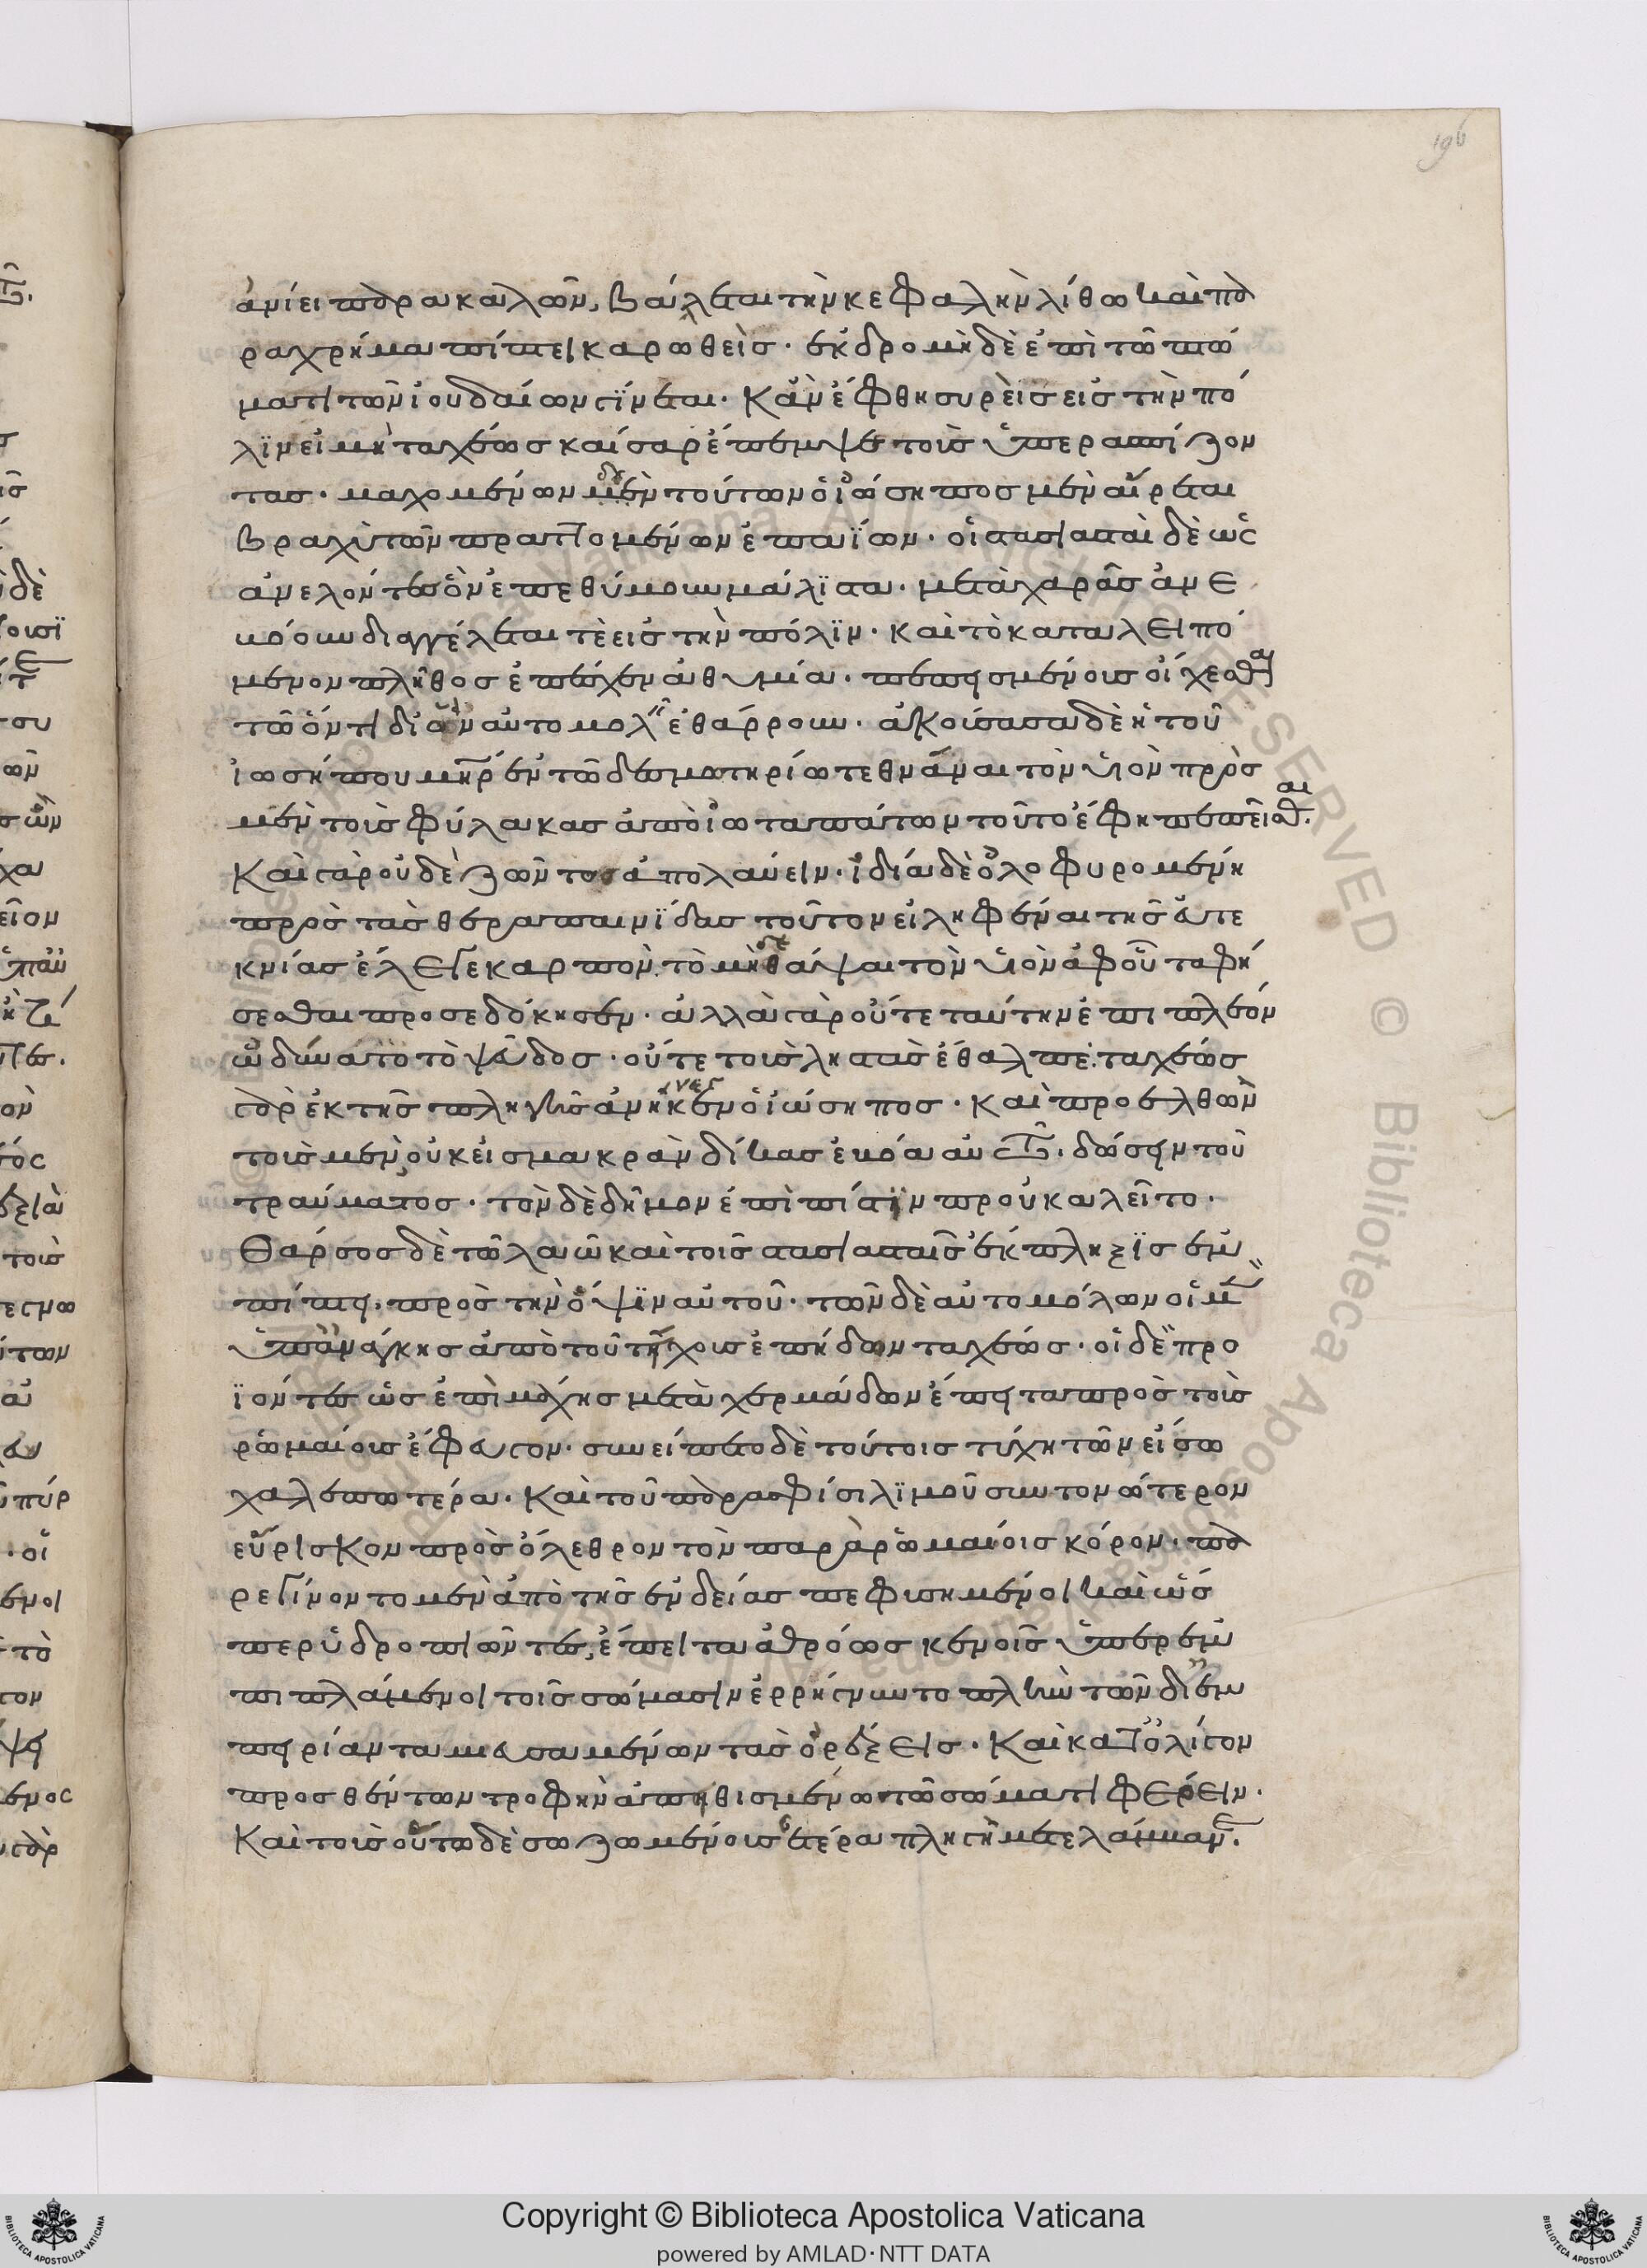 ἀνίει παρακαλῶν, βάλλεται τὴν κεφαλὴν λίθω καὶ πα
ραχρῆμα πίπτει καρωθεὶς· ἐκδρομὴ δὲ ἐπὶ τῶ πτώ
ματι τῶν ἰουδαίων γίνεται· κἂν ἔφθη συρεὶς εἰς τὴν πό
λϊν εἰ μὴ ταχέως καίσαρ ἔπεμψε τοὺς ὑπερασπίζον
τας· μαχομένων μὲν δὲ τούτων ὁ ἰώσηπος μὲν αἴρεται
βραχὺ τῶν πραττομένων ἐπαΐων· οἱ στασιασταὶ δὲ ὡς
ἀνελόντες ὃν ἐπεθύμουν μάλϊστα· μετὰ χαρᾶς ἀνε
βόουν διαγγέλεται τὲ εἰς τὴν πόλϊν· καὶ τὸ καταλειπό
μενον πλῆθος ἐπέσχεν ἀθυμία· πεπεισμένους οἴχεσθαι
τῶ ὄντι δι' ὃν αὐτομολεῖν ἐθάρρουν· ἀκούσασα δὲ ἡ τοῦ
ἰωσήπου μηρ ἐν τῶ δεσμωτηρίω τεθνᾶναι τὸν υἱὸν πρὸς
μὲν τοὺς φύλακας ἀπὸ ἰωταπάτων τοῦτο ἔφη πεπεῖσθαι.
Καὶ γὰρ οὐδὲ ζῶντος ἀπολαύειν· ἰδία δὲ ὀλοφυρομένη
πρὸς τὰς θεραπαινΐδας τοῦτον εἰληφέναι τῆς εὐτε
κνίας ἔλεγε καρπὸν. τὸ μὴδὲ θάψαι τὸν υἱὸν ἀφ' οὗ ταφή
σεσθαι προσεδόκησεν· ἀλλὰ γὰρ οὔτε ταύτην ἐπιπλέον
ὠδύνα τὸ τὸ ψεῦδος· οὔτε τοὺς ληστὰς ἔθαλπε· ταχέως
γὰρ ἐκ τῆς πληγῆς ἀνήνεγκεν ὁ ἰώσηπος· καὶ προελθὼν
τοὺς μὲν οὐκ εἰς μακρὰν δίκας ἐβόα αὐτῶ. δώσειν τοῦ
τραύματος· τὸν δὲ δῆμον ἐπὶ πίστϊν προὐκαλεῖτο·
Θάρσος δὲ τῶ λαῶ καὶ τοῖς στασιασταῖς ἔκπληξϊς ἐν
πίπτει· πρὸς τὴν ὄψϊν αὐτοῦ· τῶν δὲ αὐτομόλων οἱ μὲν
ὑπ' ἀνάγκης ἀπὸ τοῦ τείχους ἐπήδων ταχέως· οἱ δὲ προ
ϊόντες ὡς ἐπὶ μάχης μετὰ χερμάδων ἔπειτα πρὸς τοὺς
ῥωμαίους ἔφευγον· συνείπετο δὲ τούτοις τύχη τῶν εἴσω
χαλεπωτέρα· καὶ τοῦ παρὰ σφίσι λϊμοῦ συντονώτερον
εὕρισκον πρὸς ὄλεθρον τὸν παρὰ ῥωμαίοις κόρον· πα
ρεγίνοντο μὲν ἀπὸ τῆς ἐνδείας πεφυσημένοι καὶ ὥσ
περ ὑδρωπιῶντες, ἔπειτα ἀθρόως κενοῖς ὑπερεμ
πιπλάμενοι τοῖς σώμασιν ἐρρήγνυντο πλὴν τῶν δι' ἐμ
πειρίαν ταμιευσαμένων τὰς ὀρέξεις· καὶ κατ' ὀλίγον
προσθέντων τροφὴν ἀπειθισμένω τῶ σώματι φέρειν·
Καὶ τοὺς οὕτω δὲ σωζωμένους ἑτέρα πληγὴ μετελάμβανε.